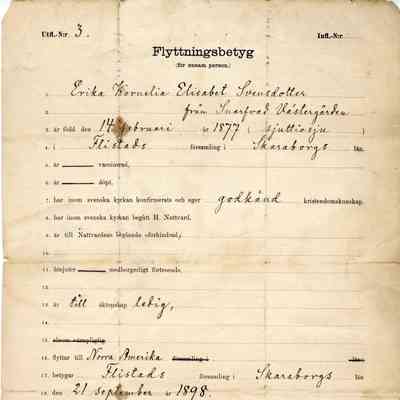 Utfl.-Nr 3. Infl.-Nr
Flyttningsbetyg
(för ensam person.)
1. Erika Kornelia Elisabet Svensdotter
2. från Västergården
3. är född den 14 februari år 1877 (sjuttiosju)
4. i Flistads församling i Skaraborgs län.
5. är vaccinerad,
6. är döpt,
7. har inom svenska kyrkan konfirmerats och eger godkänd kristendomskunskap,
8. har inom svenska kyrkan begått H. Nattvard,
9. är till Nattvardens begående oförhindrad,
10.
11. åtnjuter medborgerligt förtroende,
12.
13. är till äktenskap ledig,
14.
15.
16. flyttar till Norra Amerika församling i län
17. betygar Flistads församling i Skaraborgs län
18. den 21 september år 1898.